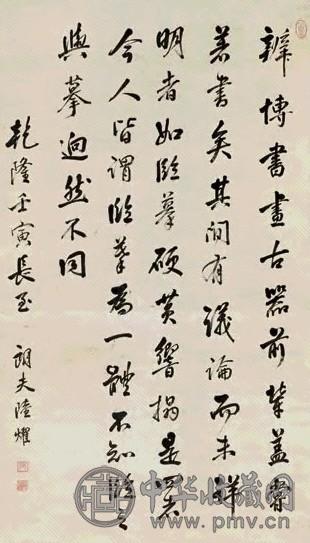 辨博書畫古器前輩蓋嘗
著書矣其間有議論而未詳
明者如臨摹硬黃響搨是四者
今人皆謂臨摹為一體不知臨之
與摹迥然不同
乾隆壬寅長至 朗夫陸燿
中华收藏网
www.pmv.cn